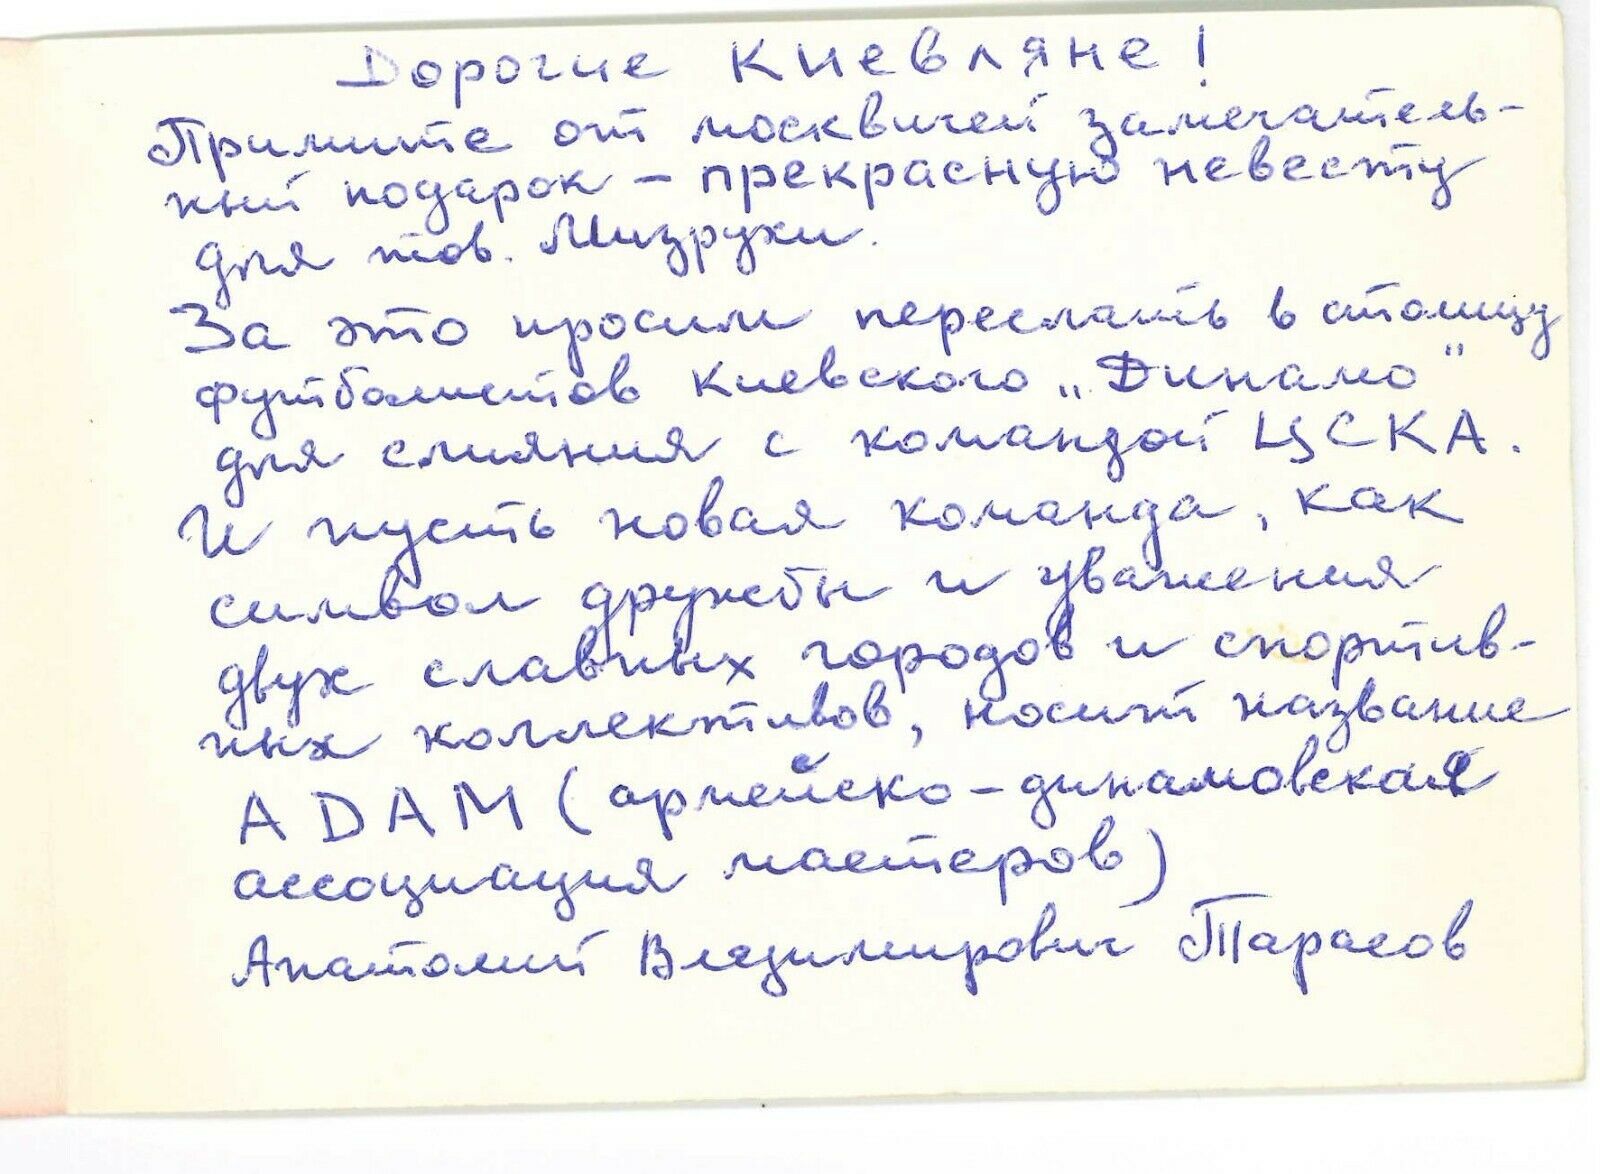 Дорогие Киевляне!
Примите от москвичей замечатель-
ный подарок – прекрасную невесту
для тов. Мизрухи.
За это просим переслать в столицу
футболистов Киевского „Динамо"
для слияния с командой ЦСКА.
И пусть новая команда, как
символ дружбы и уважения
двух славных городов и спортив-
ных коллективов, носит название
ADAM (армейско-динамовская
ассоциация мастеров)
Анатолий Владимирович Тарасов